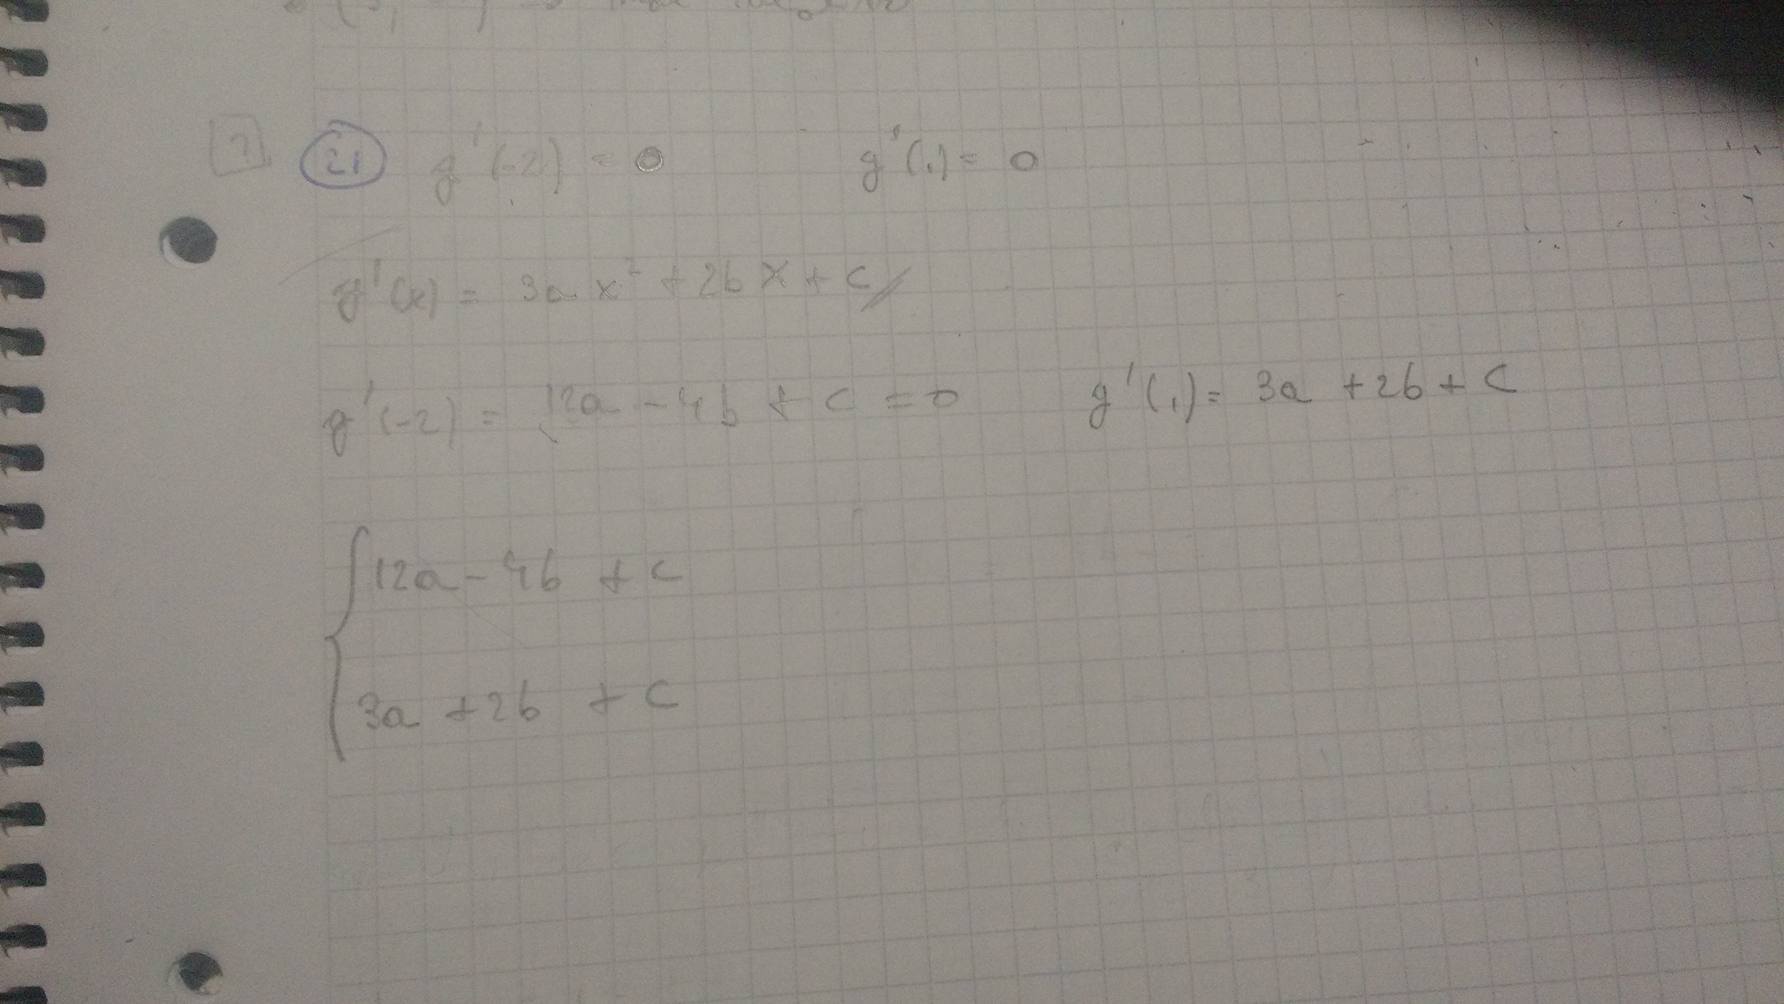 21 g'(-2) = 0 g'(1) = 0
g'(x) = 3a x² + 2b x + c
g'(-2) = 12a - 4b + c = 0 g'(1) = 3a + 2b + c
12a - 4b + c
3a + 2b + c